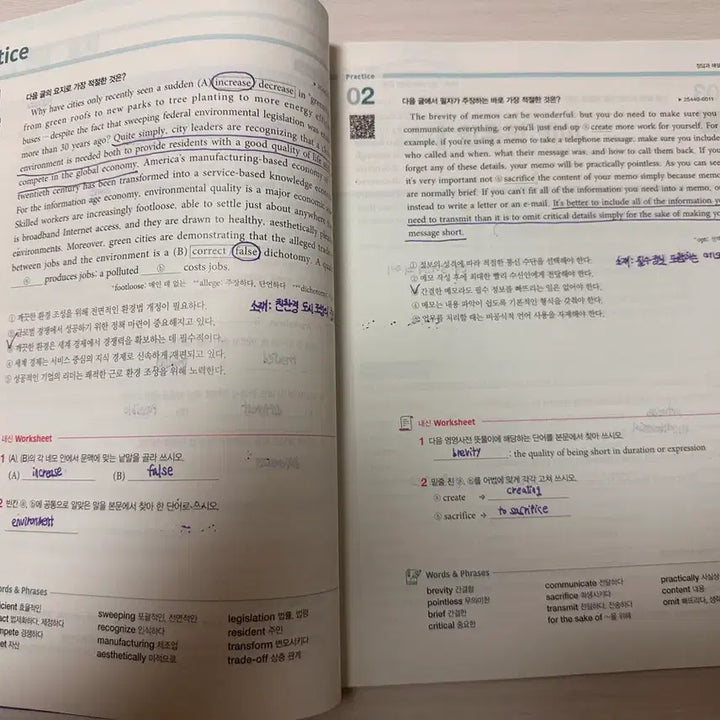 tice
다음 글의 요지로 가장 적절한 것은?
Why have cities only recently seen a sudden (A) increase decrease in
from green roofs to new parks to tree planting to more energy
buses — despite the fact that sweeping federal environmental legislation was
more than 30 years ago? Quite simply, city leaders are recognizing that a
environment is needed both to provide residents with a good quality of life
compete in the global economy. America's manufacturing-based economy
twentieth century has been transformed into a service-based knowledge
For the information age economy, environmental quality is a major economic
Skilled workers are increasingly footloose, able to settle just about anywhere
is broadband Internet access, and they are drawn to healthy, aesthetically
environments. Moreover, green cities are demonstrating that the alleged
between jobs and the environment is a (B) correct false dichotomy. A
ⓐ produces jobs; a polluted ⓑ costs jobs.
*footloose: 매인 데 없는 **allege: 주장하다, 단언하다
소재: 친환경 도시
① 깨끗한 환경 조성을 위해 전면적인 환경법 개정이 필요하다.
② 글로벌 경쟁에서 성공하기 위한 정책 마련이 중요해지고 있다.
③ 깨끗한 환경은 세계 경제에서 경쟁력을 확보하는 데 필수적이다.
④ 세계 경제는 서비스 중심의 지식 경제로 신속하게 재편되고 있다.
⑤ 성공적인 기업의 리더는 쾌적한 근로 환경 조성을 위해 노력한다.
내신 Worksheet
1 (A), (B)의 각 네모 안에서 문맥에 맞는 낱말을 골라 쓰시오.
(A) increase (B) false
2 빈칸 ⓐ, ⓑ에 공통으로 알맞은 말을 본문에서 찾아 한 단어로 쓰시오.
environment
rds & Phrases
cient 효율적인
act 법제화하다, 제정하다
mpete 경쟁하다
et 자산
sweeping 포괄적인, 전면적인
recognize 인식하다
manufacturing 제조업
aesthetically 미적으로
legislation 법률, 법령
resident 주민
transform 변모시키다
trade-off 상충 관계
Practice
02
다음 글에서 필자가 주장하는 바로 가장 적절한 것은?
25440-0011
The brevity of memos can be wonderful, but you do need to make sure you
communicate everything, or you'll just end up ⓐ create more work for yourself. For
example, if you're using a memo to take a telephone message, make sure you include
who called and when, what their message was, and how to call them back. If you
forget any of these details, your memo will be practically pointless. As you can see
it's very important not ⓑ sacrifice the content of your memo simply because memo
are normally brief. If you can't fit all of the information you need into a memo, o
instead to write a letter or an e-mail. It's better to include all of the information yo
need to transmit than it is to omit critical details simply for the sake of making yo
message short.
*opt:
① 정보의 성격에 따라 적절한 통신 수단을 선택해야 한다.
② 메모 작성 후에 최대한 빨리 수신인에게 전달해야 한다.
③ 간결한 메모라도 필수 정보를 빠뜨리는 일은 없어야 한다.
④ 메모는 내용 파악이 쉽도록 기본적인 형식을 갖춰야 한다.
⑤ 업무를 처리할 때는 비공식적 언어 사용을 자제해야 한다.
내신 Worksheet
1 다음 영영사전 뜻풀이에 해당하는 단어를 본문에서 찾아 쓰시오.
brevity : the quality of being short in duration or expression
2 밑줄 친 ⓐ, ⓑ를 어법에 맞게 각각 고쳐 쓰시오.
ⓐ create → creating
ⓑ sacrifice → to sacrifice
Words & Phrases
brevity 간결함
pointless 무의미한
brief 간결한
critical 중요한
communicate 전달하다
sacrifice 희생시키다
transmit 전달하다, 전송하다
for the sake of ~을 위해
practically 사실상
content 내용
omit 빠뜨리다, 생